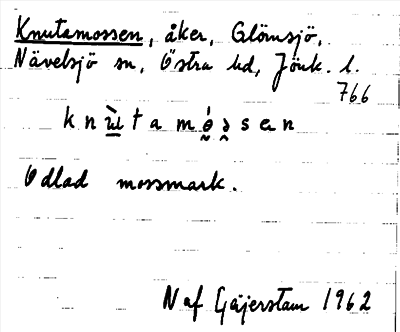 Knutamossen, åker, Glömsjö,
Nävelsjö sn, Östra hd, Jönk. l.
766
knùtamó̰ə̯sən
Odlad mossmark.
N af Gejerstam 1962